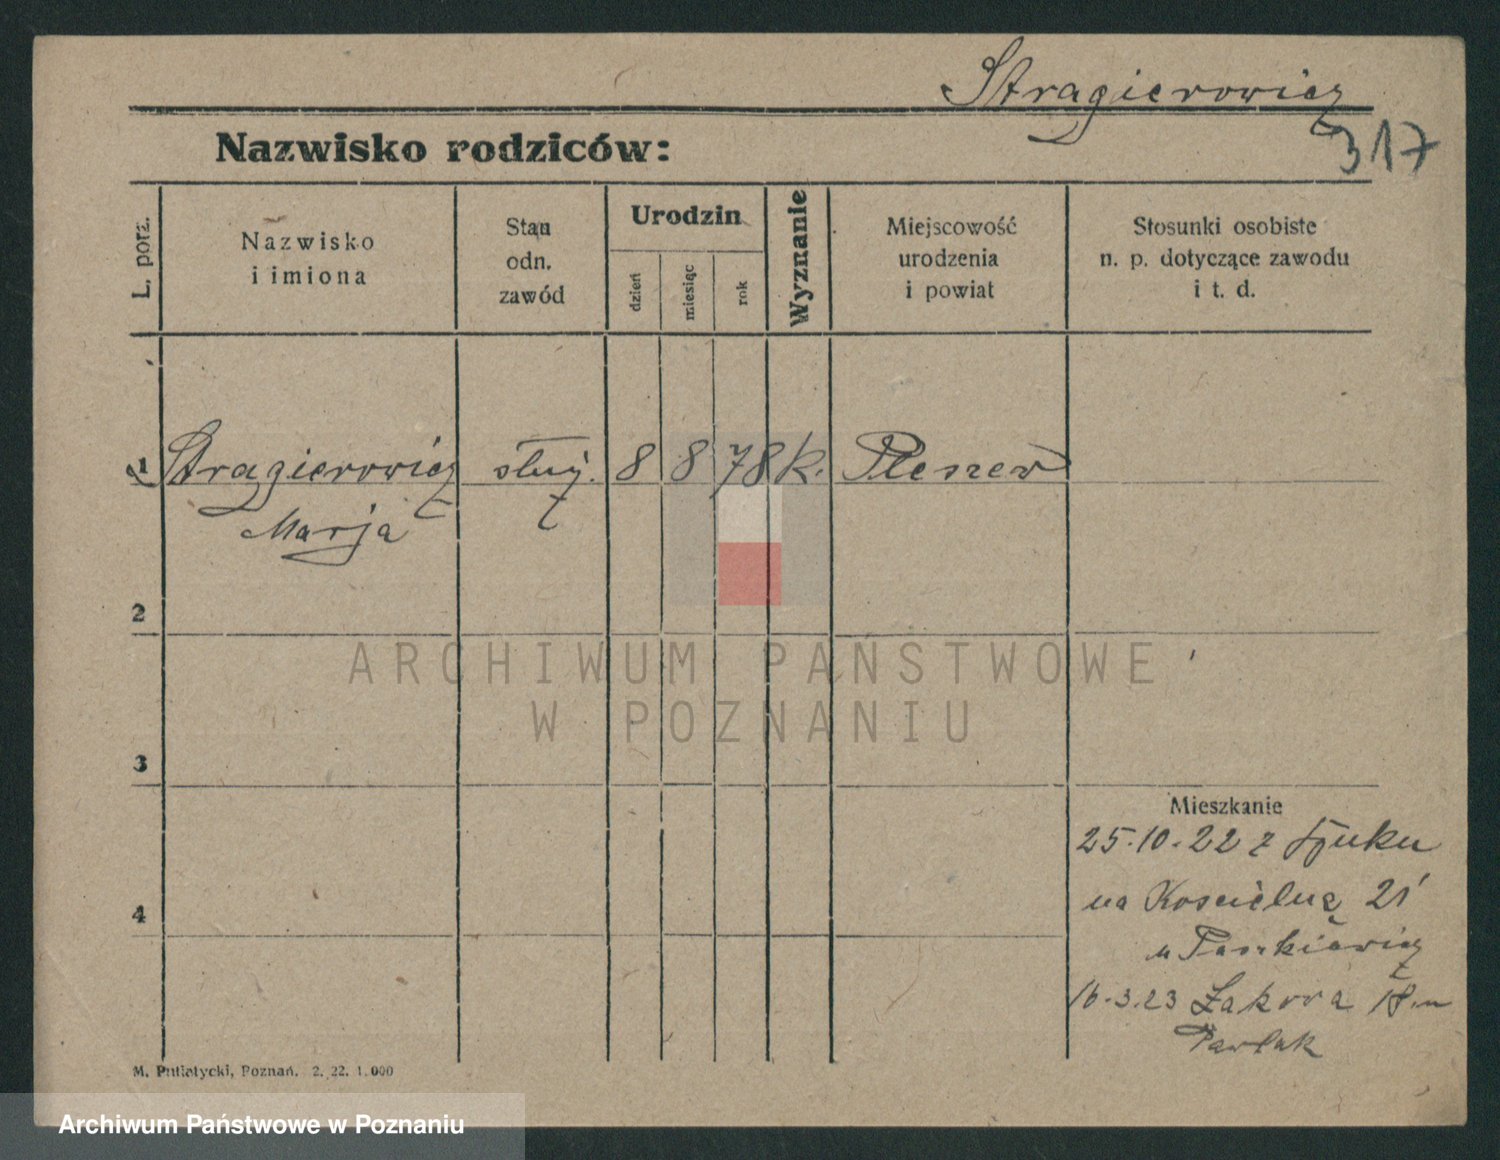 Stragierowicz
317
Nazwisko rodziców:
L. porz.
Nazwisko
i imiona
Stan
odn.
zawód
Urodzin
dzień
miesiąc
rok
Wyznanie
Miejscowość
urodzenia
i powiat
Stosunki osobiste
n. p. dotyczące zawodu
i t. d.
1 Stragierowicz służ. 8 8 78 k. Pleszew
Marja
2
3
4
Mieszkanie
25.10.22 z
na Kościelną 21
u
16.3.23 18 u
Pawlak
M. Putiatycki, Poznań. 2. 22. 1.000
ARCHIWUM PAŃSTWOWE
W POZNANIU
Archiwum Państwowe w Poznaniu